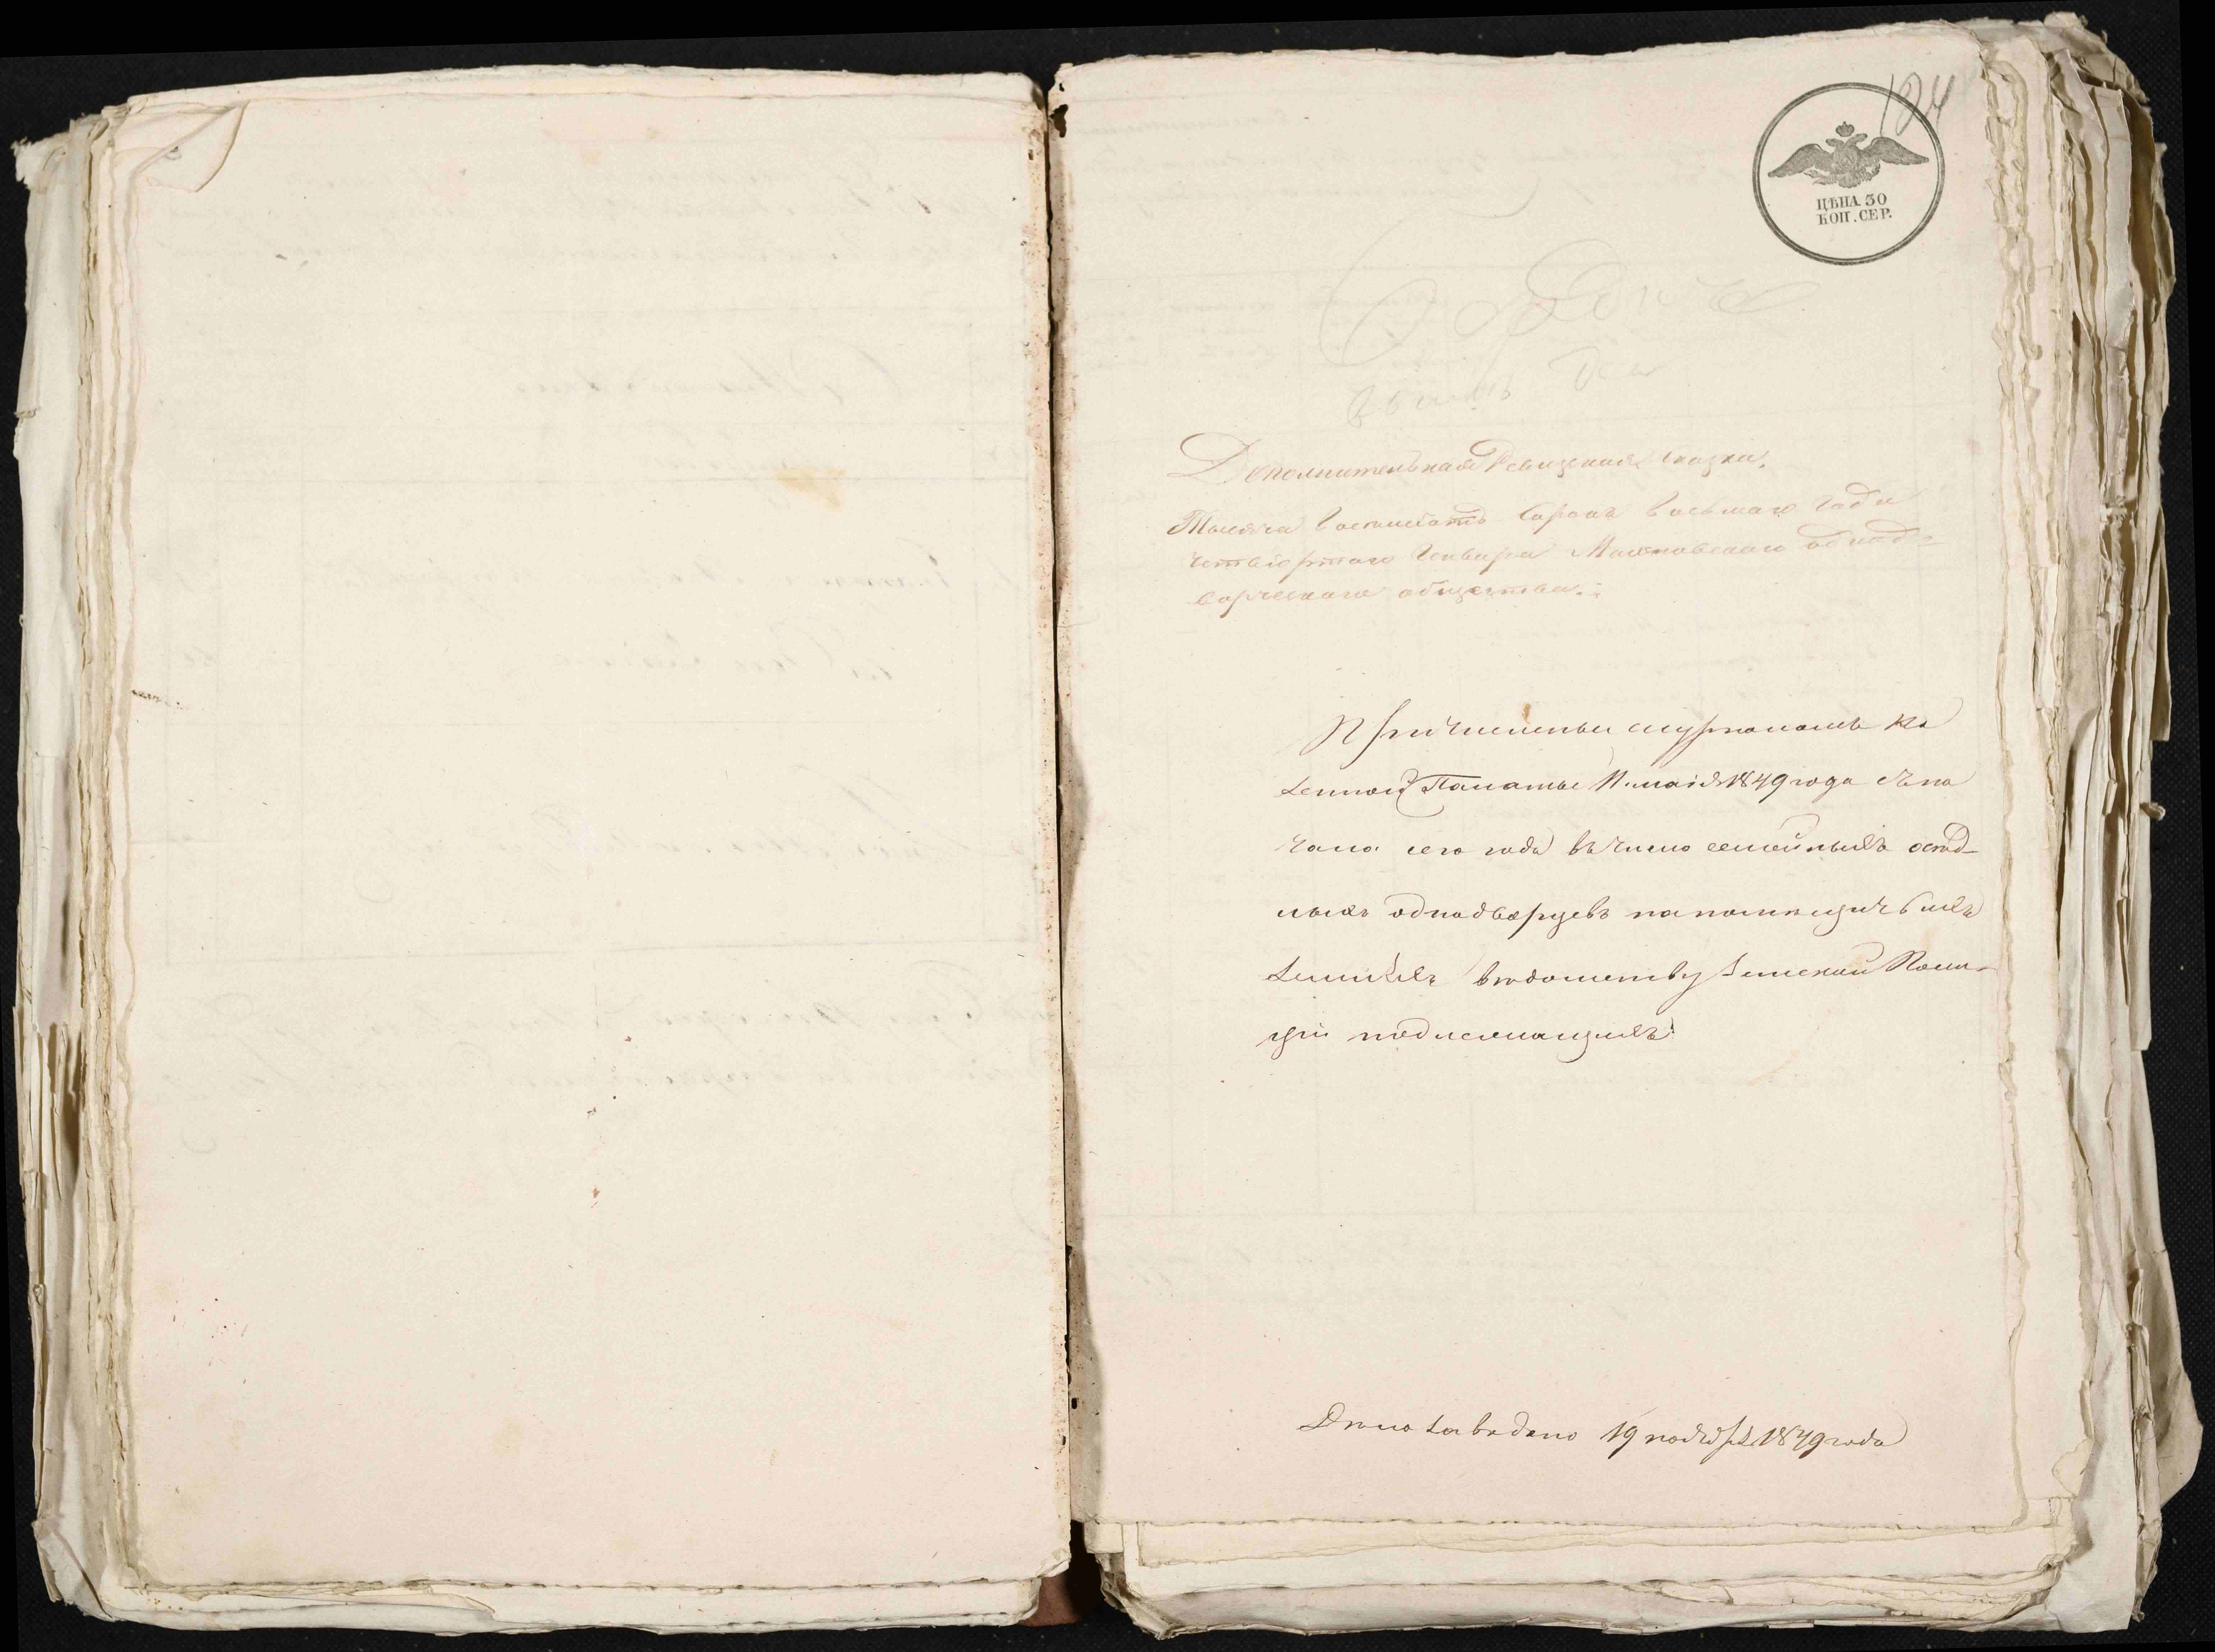 124
ЦѢНА 30
КОП. СЕР.
Дополнительная Ревизская сказка,
Тысяча восемьсотъ сорокъ восьмаго года
четвертаго Генваря Махновскаго однод=
ворческаго общества.
Причислены журналомъ Ка
зенной Палаты 11 маія 1849 года съ на
чала сего года въ число семейныхъ осѣд-
лыхъ однодворцевъ на помѣщичьихъ
земляхъ вѣдомству Земской Поли-
ціи подлежащихъ
Дѣло заведено 19 ноября 1849 года